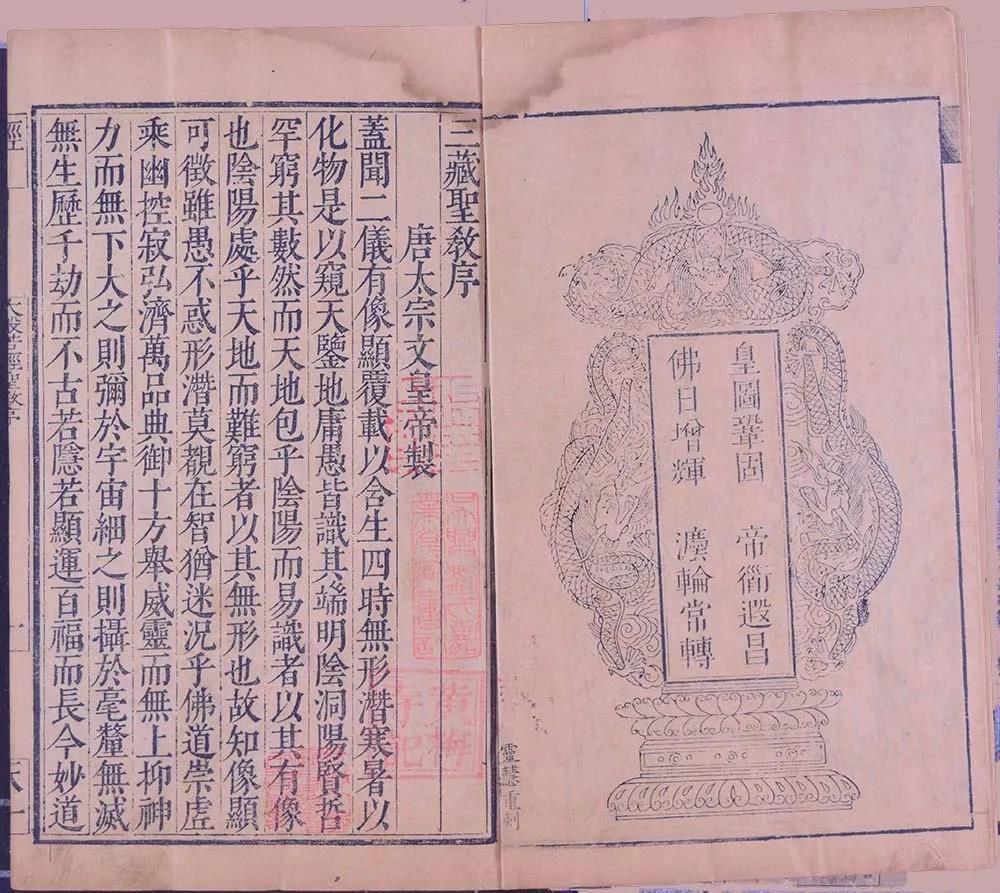 皇圖鞏固 帝衜遐昌
佛日增輝 灋輪常轉
靈慧重刺
三藏聖教序
唐太宗文皇帝製
蓋聞二儀有像顯覆載以含生四時無形潛寒暑以
化物是以窺天鑒地庸愚皆識其端明陰洞陽賢哲
罕窮其數然而天地包乎陰陽而易識者以其有像
也陰陽處乎天地而難窮者以其無形也故知像顯
可徵雖愚不惑形潛莫覩在智猶迷況乎佛道崇虛
乘幽控寂弘濟萬品典御十方舉威靈而無上抑神
力而無下大之則彌於宇宙細之則攝於毫釐無滅
無生歷千劫而不古若隱若顯運百福而長今妙道
大般若經聖教序